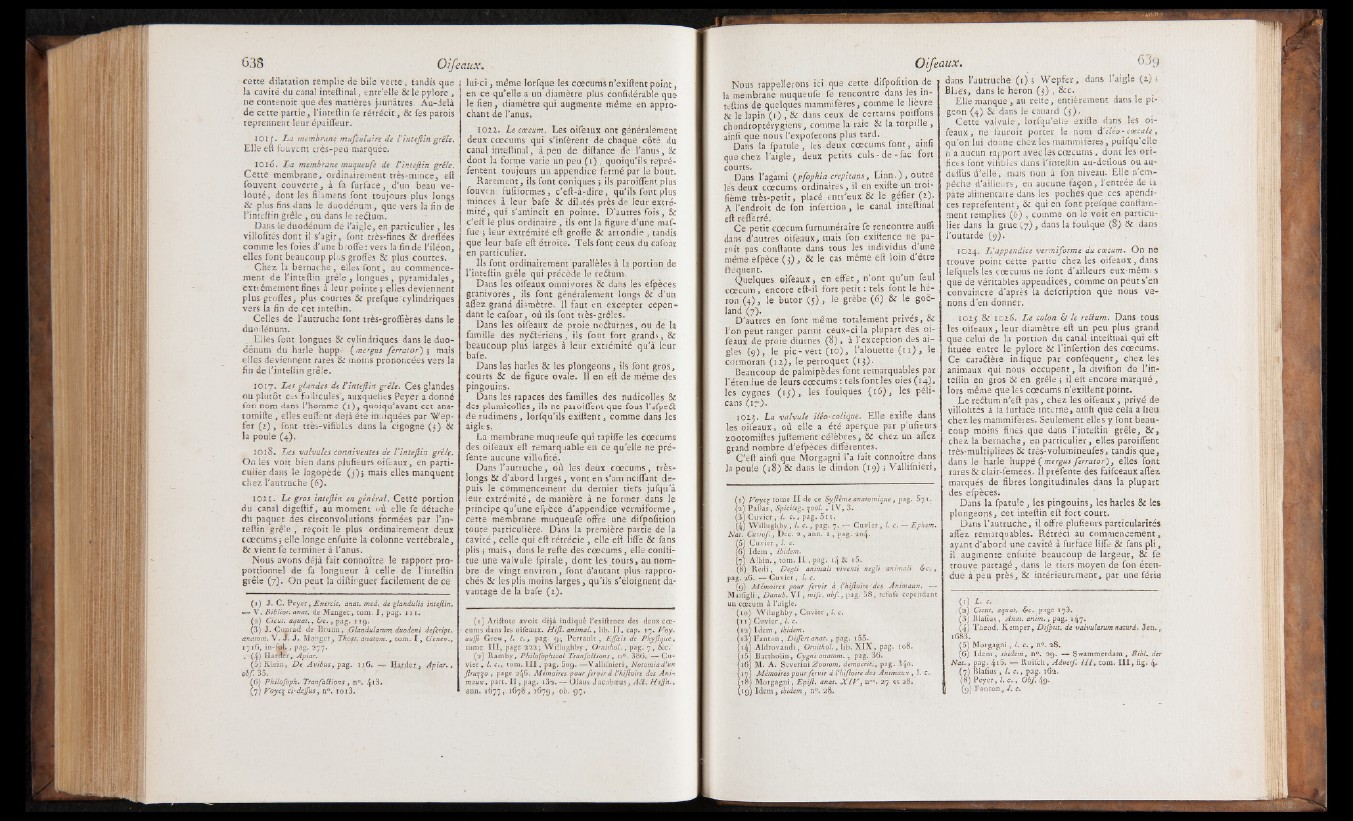 638
Oiſeaux.
cette dilatation remplie de bile verte, tandis que
la cavité du canal inteſtinal, entr'elle & le pylore,
ne contenoit que des matières jaunâtres. Au-delà
de cette partie, l'inteſtin ſe rétrécit, & ſes parois
reprennent leur épaiſſeur.
1015. La membrane muſculaire de l'inteſtin grêle.
Elle eſt ſouvent très-peu marquée.
1016. La membrane muqueuſe de l'inteſtin grêle.
Cette membrane, ordinairement très-mince, eſt
ſouvent couverte, à ſa ſurface, d'un beau ve-
louté, dont les filamens ſont toujours plus longs
& plus fins dans le duodénum, que vers la fin de
l'inteſtin grêle, ou dans le rectum.
Dans le duodénum de l'aigle, en particulier, les
villoſités dont il s'agit, ſont très-fines & dreſſées
comme les ſoies d'une broſſe: vers la fin de l'iléon,
elles ſont beaucoup plus groſſes & plus courtes.
Chez la bernache, elles ſont, au commence-
ment de l'inteſtin grêle, longues, pyramidales,
extrêmement fines à leur pointe; elles deviennent
plus groſſes, plus courtes & preſque cylindriques
vers la fin de cet inteſtin.
Celles de l'autruche ſont très-groſſières dans le
duodénum.
Elles ſont longues & cylindriques dans le duo-
dénum du harle huppé (mergus ſerrator); mais
elles deviennent rares & moins prononcées vers la
fin de l'inteſtin grêle.
1017. Les glandes de l'inteſtin grêle. Ces glandes
ou plutôt ces follicules, auxquelles Peyer a donné
ſon nom dans l'homme (1), quoiqu'avant cet ana-
tomiſte, elles euſſent déjà été indiquées par Wep-
fer (2), ſont très-viſibles dans la cigogne (3) &
la poule (4).
1018. Les valvules conniventes de l'inteſtin grêle.
On les voit bien dans pluſieurs oiſeaux, en parti-
culier dans le lagopède (5); mais elles manquent
chez l'autruche (6).
1021. Le gros inteſtin en général. Cette portion
du canal digeſtif, au moment où elle ſe détache
du paquet des circonvolutions formées par l'in-
teſtin grêle, reçoit le plus ordinairement deux
cœcums; elle longe enſuite la colonne vertébrale,
& vient ſe terminer à l'anus.
Nous avons déjà fait connoître le rapport pro-
portionnel de ſa longueur à celle de l'inteſtin
grêle (7). On peut la diſtinguer facilement de ce
(1) J. C. Peyer, Exercit. anat. med. de glandulis inteſtin.
— V. Biblioc. anat. de Manget, tom. I, pag. 121.
(2) Cicut. aquat., &c., pag. 119.
(3) J. Conrad de Brunn, Glandularum duodeni deſcript.
anatom. V. J. J. Manget, Theat. anatom., tom. I, Genev.,
1716, in-fol., pag. 277.
(4) Harder, Apiar.
(5) Klein, De Avibus, pag. 136. — Harder, Apiar.,
obſ. 35.
(6) Philoſoph. Tranſactions, nº. 413.
(7) Voyez ci-deſſus, nº. 1013.
lui-ci, même lorſque les cœcums n'exiſtent point,
en ce qu'elle a un diamètre plus conſidérable que
le ſien, diamètre qui augmente même en appro-
chant de l'anus.
1022. Le cœcum. Les oiſeaux ont généralement
deux cœcums qui s'inſèrent de chaque côté du
canal inteſtinal, à peu de diſtance de l'anus, &
dont la forme varie un peu (1), quoiqu'ils repré-
ſentent toujours un appendice fermé par le bout.
Rarement, ils ſont coniques; ils paroiſſent plus
ſouvent fuſiformes, c'eſt-à-dire, qu'ils ſont plus
minces à leur baſe & dilatés près de leur extré-
mité, qui s'amincit en pointe. D'autres fois, &
c'eſt le plus ordinaire, ils ont la figure d'une maſ-
ſue; leur extrémité eſt groſſe & arrondie, tandis
que leur baſe eſt étroite. Tels ſont ceux du caſoar
en particulier.
Ils ſont ordinairement parallèles à la portion de
l'inteſtin grêle qui précède le rectum.
Dans les oiſeaux omnivores & dans les eſpèces
granivores, ils ſont généralement longs & d'un
aſſez grand diamètre. Il faut en excepter cepen-
dant le caſoar, où ils ſont très-grêles.
Dans les oiſeaux de proie nocturnes, ou de la
famille des nyctériens, ils ſont fort grands, &
beaucoup plus larges à leur extrémité qu'à leur
baſe.
Dans les harles & les plongeons, ils ſont gros,
courts & de figure ovale. Il en eſt de même des
pingouins.
Dans les rapaces des familles des nudicolles &
des plumicolles, ils ne paroiſſent que ſous l'aſpect
de rudimens, lorſqu'ils exiſtent, comme dans les
aigles.
La membrane muqueuſe qui tapiſſe les cœcums
des oiſeaux eſt remarquable en ce qu'elle ne pré-
ſente aucune villoſité.
Dans l'autruche, où les deux cœcums, très-
longs & d'abord larges, vont en s'amincíſſant de-
puis le commencement du dernier tiers juſqu'à
leur extrémité, de manière à ne former dans le
principe qu'une eſpèce d'appendice vermiforme,
cette membrane muqueuſe offre une diſpoſition
toute particulière. Dans la première partie de la
cavité, celle qui eſt rétrécie, elle eſt liſſe & ſans
plis; mais, dans le reſte des cœcums, elle conſti-
tue une valvule ſpirale, dont les tours, au nom-
bre de vingt environ, ſont d'autant plus rappro-
chés & les plis moins larges, qu'ils s'éloignent da-
vantage de la baſe (2).
(1) Ariſtote avoit déjà indiqué l'exiſtence des deux cœ-
cums dans les oiſeaux. Hiſt. animal., lib. II, cap. 17. Voy.
auſſi Grew, l. c., pag. 9; Perrault, Eſſais de Phyſique,
tome III, page 222; Willughby, Ornithol., pag. 7, &c.
(2) Ramby, Philoſophical Tranſactions, nº. 386. — Cu-
vier, l. c., tom. III, pag. 509. — Valliſnieri, Notomia d'un
ſtruzzo, page 246. Mémoires pour ſervir à l'hiſtoire des Ani-
maux, part. II, pag. 132. — Olaus Jacobæus, Act. Hafn.,
ann. 1677, 1678, 1679, ob. 97.
Oiſeaux.
639
Nous rappellerons ici que cette diſpoſition de
la membrane muqueuſe ſe rencontre dans les in-
teſtins de quelques mammifères, comme le lièvre
& le lapin (1), & dans ceux de certains poiſſons
chondroptérygiens, comme la raie & la torpille,
ainſi que nous l'expoſerons plus tard.
Dans la ſpatule, les deux cœcums ſont, ainſi
que chez l'aigle, deux petits culs-de-ſac fort
courts.
Dans l'agami (pſophia crepitans, Linn.), outre
les deux cœcums ordinaires, il en exiſte un troi-
ſième très-petit, placé entr'eux & le géſier (2).
A l'endroit de ſon inſertion, le canal inteſtinal
eſt reſſerré.
Ce petit cœcum ſurnuméraire ſe rencontre auſſi
dans d'autres oiſeaux, mais ſon exiſtence ne pa-
roît pas conſtante dans tous les individus d'une
même eſpèce (3), & le cas même eſt loin d'être
fréquent.
Quelques oiſeaux, en effet, n'ont qu'un ſeul
cœcum, encore eſt-il fort petit: tels ſont le hé-
ron (4), le butor (5), le grèbe (6) & le goë-
land (7).
D'autres en ſont même totalement privés, &
l'on peut ranger parmi ceux-ci la plupart des oi-
ſeaux de proie diurnes (8), à l'exception des ai-
gles (9), le pic-vert (10), l'alouette (11), le
cormoran (12), le perroquet (13).
Beaucoup de palmipèdes ſont remarquables par
l'étendue de leurs cœcums: tels ſont les oies (14),
les cygnes (15), les foulques (16), les péli-
cans (17).
1023. La valvule iléo-colique. Elle exiſte dans
les oiſeaux, où elle a été aperçue par pluſieurs
zootomiſtes juſtement célèbres, & chez un aſſez
grand nombre d'eſpèces différentes.
C'eſt ainſi que Morgagni l'a fait connoître dans
la poule (18) & dans le dindon (19); Valliſnieri,
(1) Voyez tome II de ce Syſtème anatomique, pag. 571.
(2) Pallas, Spicileg. zool., IV, 3.
(3) Cuvier, l. c., pag. 511.
(4) Willughby, l. c., pag. 7. — Cuvier, l. c. — Ephem.
Nat. Curioſ., Dec. 2, ann. 1, pag. 204.
(5) Cuvier, l. c.
(6) Idem, ibidem.
(7) Albin., tom. II, pag. 14 & 15.
(8) Redi, Degli animali viventi negli animali &c.,
pag. 26. — Cuvier, l. c.
(9) Mémoires pour ſervir à l'hiſtoire des Animaux. —
Marſigli, Danub. VI, miſc. obſ., pag. 58, refuſe cependant
un cœcum à l'aigle.
(10) Willughby, Cuvier, l. c.
(11) Cuvier, l. c.
(12) Idem, ibidem.
(13) Fanton, Diſſert. anat., pag. 155.
(14) Aldrovandi, Ornithol., lib. XIX, pag. 108.
(15) Bartholin, Cygni anatom., pag. 36.
(16) M. A. Severini Zootom. democrit., pag. 340.
(17) Mémoires pour ſervir à l'hiſtoire des Animaux, l. c.
(18) Morgagni, Epiſt. anat. XIV, nºˢ. 27 et 28.
(19) Idem, ibidem, nº. 28.
dans l'autruche (1); Wepfer, dans l'aigle (2);
Blaes, dans le héron (3), &c.
Elle manque, au reſte, entièrement dans le pi-
geon (4) & dans le canard (5).
Cette valvule, lorſqu'elle exiſte dans les oi-
ſeaux, ne ſauroit porter le nom d'iléo-cœcale,
qu'on lui donne chez les mammifères, puiſqu'elle
n'a aucun rapport avec les cœcums, dont les ori-
fices ſont viſibles dans l'inteſtin au-deſſous ou au-
deſſus d'elle, mais non à ſon niveau. Elle n'em-
pêche d'ailleurs, en aucune façon, l'entrée de la
pâte alimentaire dans les poches que ces appendi-
ces repréſentent, & qui en ſont preſque conſtam-
ment remplies (6), comme on le voit en particu-
lier dans la grue (7), dans la foulque (8) & dans
l'outarde (9).
1024. L'appendice vermiforme du cœcum. On ne
trouve point cette partie chez les oiſeaux, dans
leſquels les cœcums ne ſont d'ailleurs eux-mêmes
que de véritables appendices, comme on peut s'en
convaincre d'après la deſcription que nous ve-
nons d'en donner.
1025 & 1026. Le colon & le rectum. Dans tous
les oiſeaux, leur diamètre eſt un peu plus grand
que celui de la portion du canal inteſtinal qui eſt
ſituée entre le pylore & l'inſertion des cœcums.
Ce caractère indique par conſéquent, chez les
animaux qui nous occupent, la diviſion de l'in-
teſtin en gros & en grêle; il eſt encore marqué,
lors même que les cœcums n'exiſtent point.
Le rectum n'eſt pas, chez les oiſeaux, privé de
villoſités à ſa ſurface interne, ainſi que cela a lieu
chez les mammifères. Seulement elles y ſont beau-
coup moins fines que dans l'inteſtin grêle, &,
chez la bernache, en particulier, elles paroiſſent
très-multipliées & très-volumineuſes, tandis que,
dans le harle huppé (mergus ſerrator), elles ſont
rares & clair-ſemées. Il préſente des faiſceaux aſſez
marqués de fibres longitudinales dans la plupart
des eſpèces.
Dans la ſpatule, les pingouins, les harles & les
plongeons, cet inteſtin eſt fort court.
Dans l'autruche, il offre pluſieurs particularités
aſſez remarquables. Rétréci au commencement,
ayant d'abord une cavité à ſurface liſſe & ſans pli,
il augmente enſuite beaucoup de largeur, & ſe
trouve partagé, dans le tiers moyen de ſon éten-
due à peu près, & intérieurement, par une ſérie
(1) L. c.
(2) Cicut. aquat. &c. page 173.
(3) Blaſius, Anat. anim., pag. 147.
(4) Theod. Kemper, Diſput. de valvularum naturâ. Jen.,
1683.
(5) Morgagni, l. c., nº. 28.
(6) Idem, ibidem, nº. 29. — Swammerdam, Bibl. der
Nat., pag. 415. — Ruiſch, Adverſ. III, tom. III, fig. 4.
(7) Blaſius, l. c., pag. 162.
(8) Peyer, l. c., Obſ. 49.
(9) Fanton, l. c.